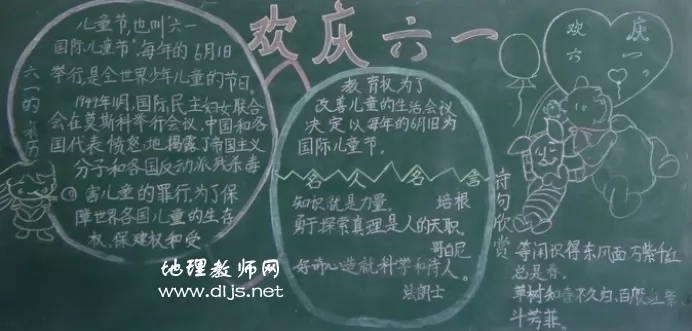 欢庆六一
六一的来历
儿童节,也叫“六一
国际儿童节”,每年的6月1日
举行,是全世界少年儿童的节日。
1949年11月,国际民主妇女联合
会在莫斯科举行会议,中国和各
国代表愤怒地揭露了帝国主义
分子和各国反动派残杀毒
害儿童的罪行,为了保
障世界各国儿童的生存
权、保健权和受
教育权,为了
改善儿童的生活,会议
决定以每年的6月1日为
国际儿童节。
名人名言
知识就是力量。 培根
勇于探索真理是人的天职。
哥白尼
好奇心造就科学和诗人。
法朗士
欢庆
六一。
诗句欣赏
等闲识得东风面,万紫千红
总是春。
草树知春不久归,百般红紫
斗芳菲。
地理教师网
www.dljs.net